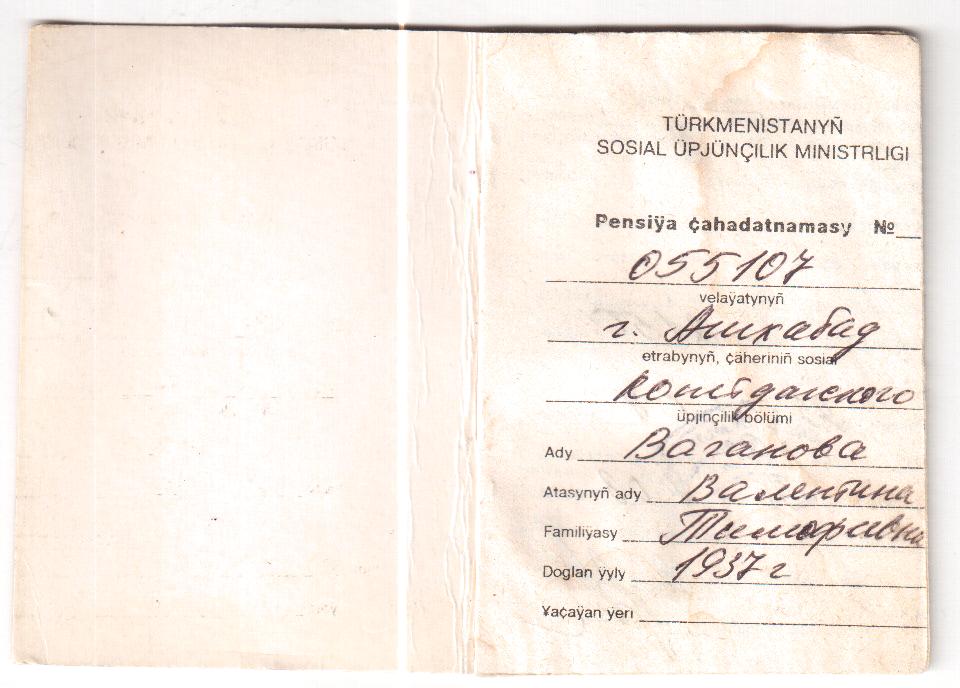 TÜRKMENISTANYÑ
SOSIAL ÜPJÜNÇILIK MINISTRLIGI
Pensiÿa çahadatnamasy №
055107
velaÿatynyñ
г. Ашхабад
etrabynyñ, çäheriniñ sosial
Копетдагского
üpjinçilik bölümi
Ady Ваганова
Atasynyñ ady Валентина
Familiÿasy Тимофивна
Doglan ÿyly 1937 г
Ɏaçaÿan ÿeri